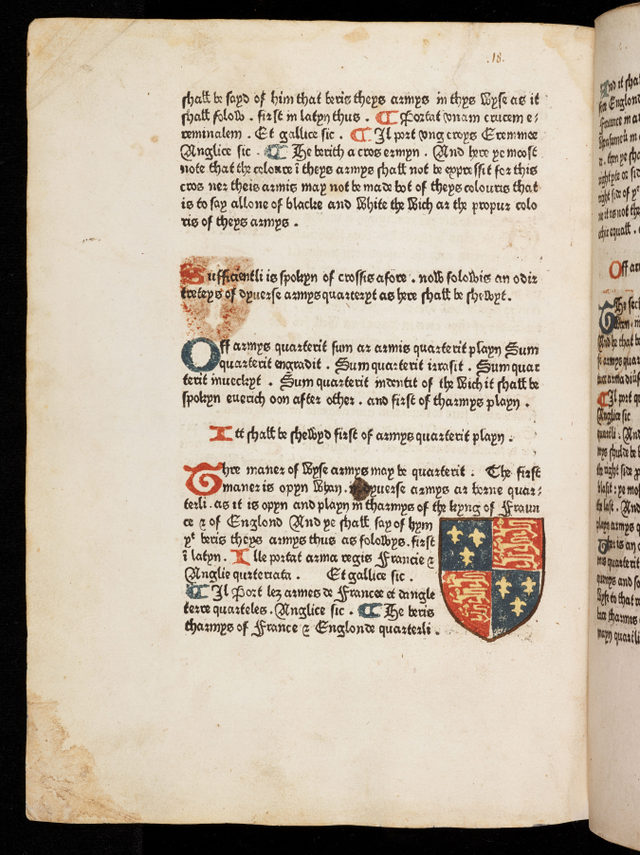 .18.
shall be sayd of him that beris theys armys in thys Wyse as it
shall folow . first in latyn thus . ¶ Portat vnam crucem e⸗
reminalem . Et gallice sic . ¶ Il port vng croys Eremmee
Anglice sic . ¶ He berith a cros ermyn . And here ye moost
note that the coloure ī theys armys shall not be expressit for this
cros ner theis armis may not be made bot of theys colouris that
is to say allone of blacke and White the Wich ar the propur colo
ris of theys armys .
Sufficientli is spokyn of crossis afore . now folowis an odir
treteys of dyuerse armys quarteryt as here shall be shewyt.
Off armys quarterit sum ar armis quarterit playn Sum
quarterit engradit . Sum quarterit irrasit . Sum quar
terit inueckyt . Sum quarterit indentit of the Wich it shall be
spokyn euerich oon after other . and first of tharmys playn .
Itt shall be shewyd first of armys quarterit playn .
Thre maner of Wyse armys may be quarterit . The first
maner is opyn Whan dyuerse armys ar borne quar⸗
terli . as it is opyn and playn in tharmys of the kyng of Fraun
ce ⁊ of Englond And ye shall say of hym
yt beris theys armys thus as folowys . first
ī latyn . Ille portat arma regis Francie ⁊
Anglie qurteriata . Et gallice sic .
¶ Il Port lez armes de France et dangle
terre quarteles . Anglice sic . ¶ He beris
tharmys of France ⁊ Englonde quarterli .